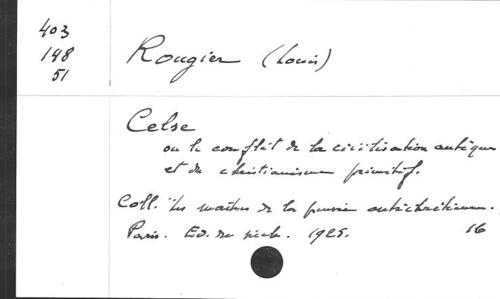 403
148
51
Rougier (Louis)
Celse
ou le conflit de la civilisation antique
et du christianisme primitif.
Coll. Les maîtres de la pensée antichrétienne.
Paris. Ed. du siècle. 1925. 16